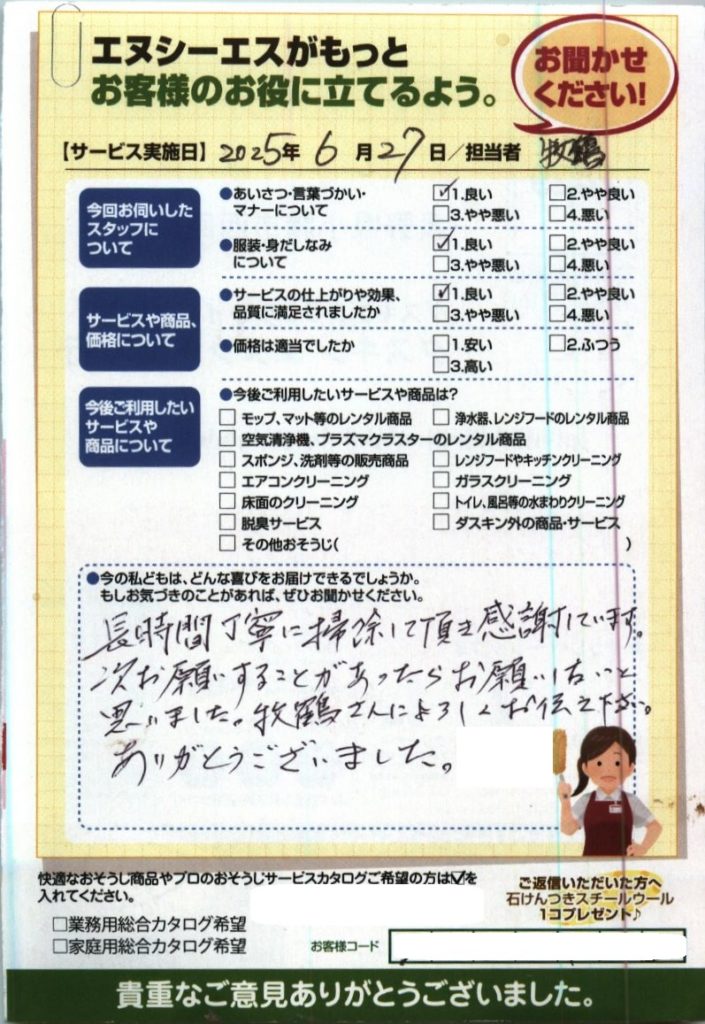 エヌシーエスがもっと
お客様のお役に立てるよう。
お聞かせ
ください!
【サービス実施日】2025年 6月27日/担当者 牧鶴
今回お伺いした
スタッフに
ついて
●あいさつ・言葉づかい・
マナーについて
☑1.良い □2.やや良い
□3.やや悪い □4.悪い
●服装・身だしなみ
について
☑1.良い □2.やや良い
□3.やや悪い □4.悪い
サービスや商品、
価格について
●サービスの仕上がりや効果、
品質に満足されましたか
☑1.良い □2.やや良い
□3.やや悪い □4.悪い
●価格は適当でしたか
□1.安い □2.ふつう
□3.高い
今後ご利用したい
サービスや
商品について
●今後ご利用したいサービスや商品は?
□ モップ、マット等のレンタル商品 □ 浄水器、レンジフードのレンタル商品
□ 空気清浄機、プラズマクラスターのレンタル商品
□ スポンジ、洗剤等の販売商品 □ レンジフードやキッチンクリーニング
□ エアコンクリーニング □ ガラスクリーニング
□ 床面のクリーニング □ トイレ、風呂等の水まわりクリーニング
□ 脱臭サービス □ ダスキン外の商品・サービス
□ その他おそうじ( )
●今の私どもは、どんな喜びをお届けできるでしょうか。
もしお気づきのことがあれば、ぜひお聞かせください。
長時間丁寧に掃除して頂き感謝しています。
次お願いすることがあったらお願いしたいと
思いました。牧鶴さんによろしくお伝え下さい。
ありがとうございました。
快適なおそうじ商品やプロのおそうじサービスカタログご希望の方は☑を
入れてください。
□業務用総合カタログ希望
□家庭用総合カタログ希望
ご返信いただいた方へ
石けんつきスチールウール
1コプレゼント♪
お客様コード
貴重なご意見ありがとうございました。